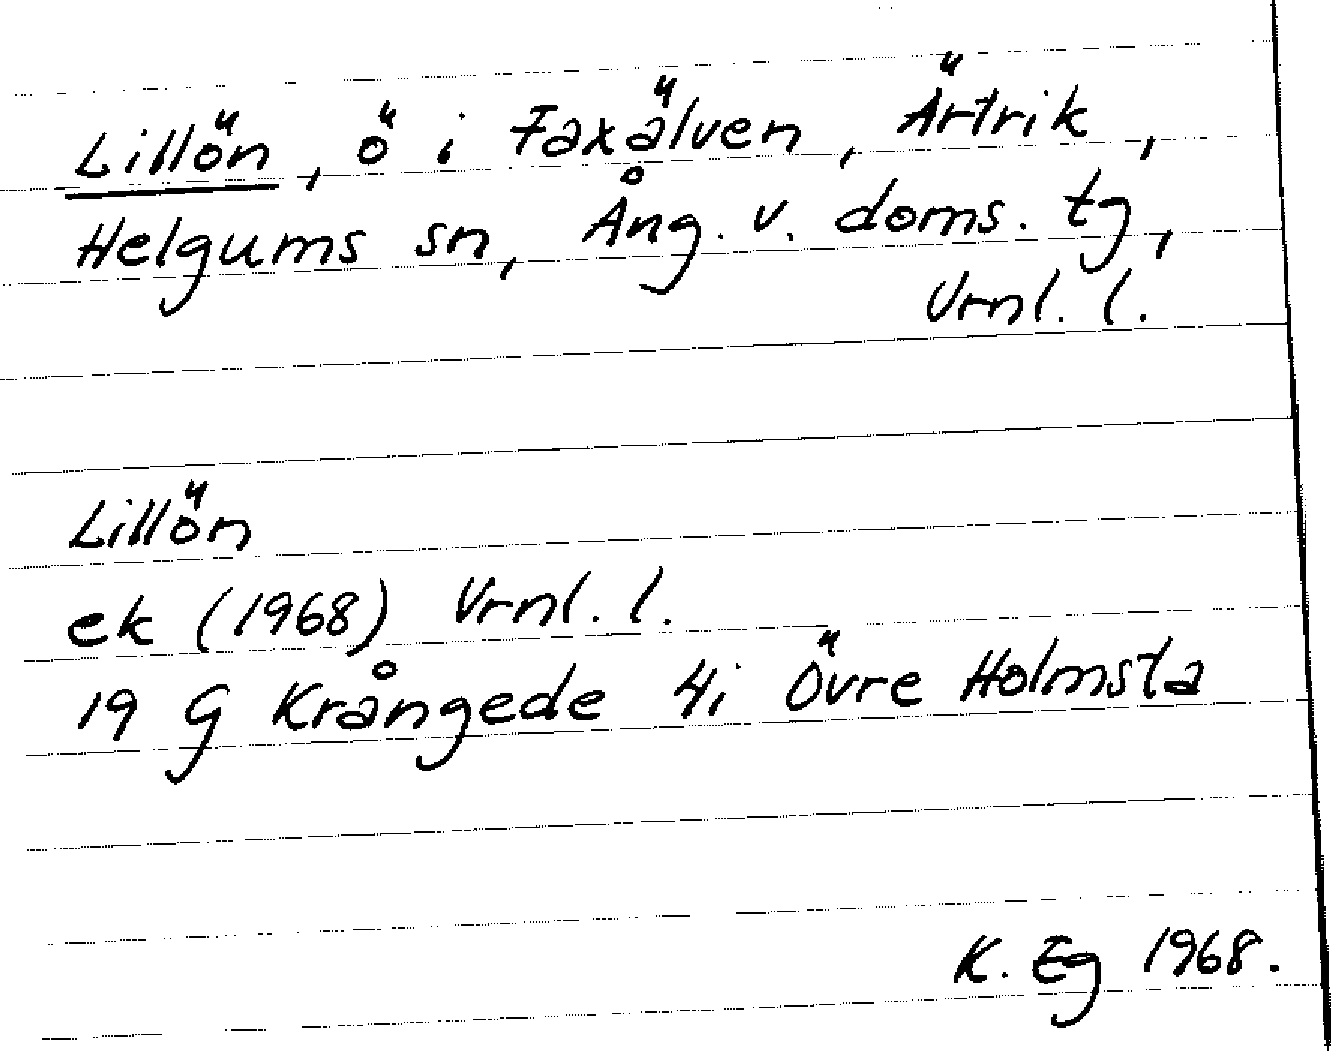 Lillön, ö i Faxälven, Ärtrik,
Helgums sn, Ång. v. doms. tg,
Vrnl. l.
Lillön
ek (1968) Vrnl. l.
19 G Krångede 4i Övre Holmsta
K. Eg 1968.